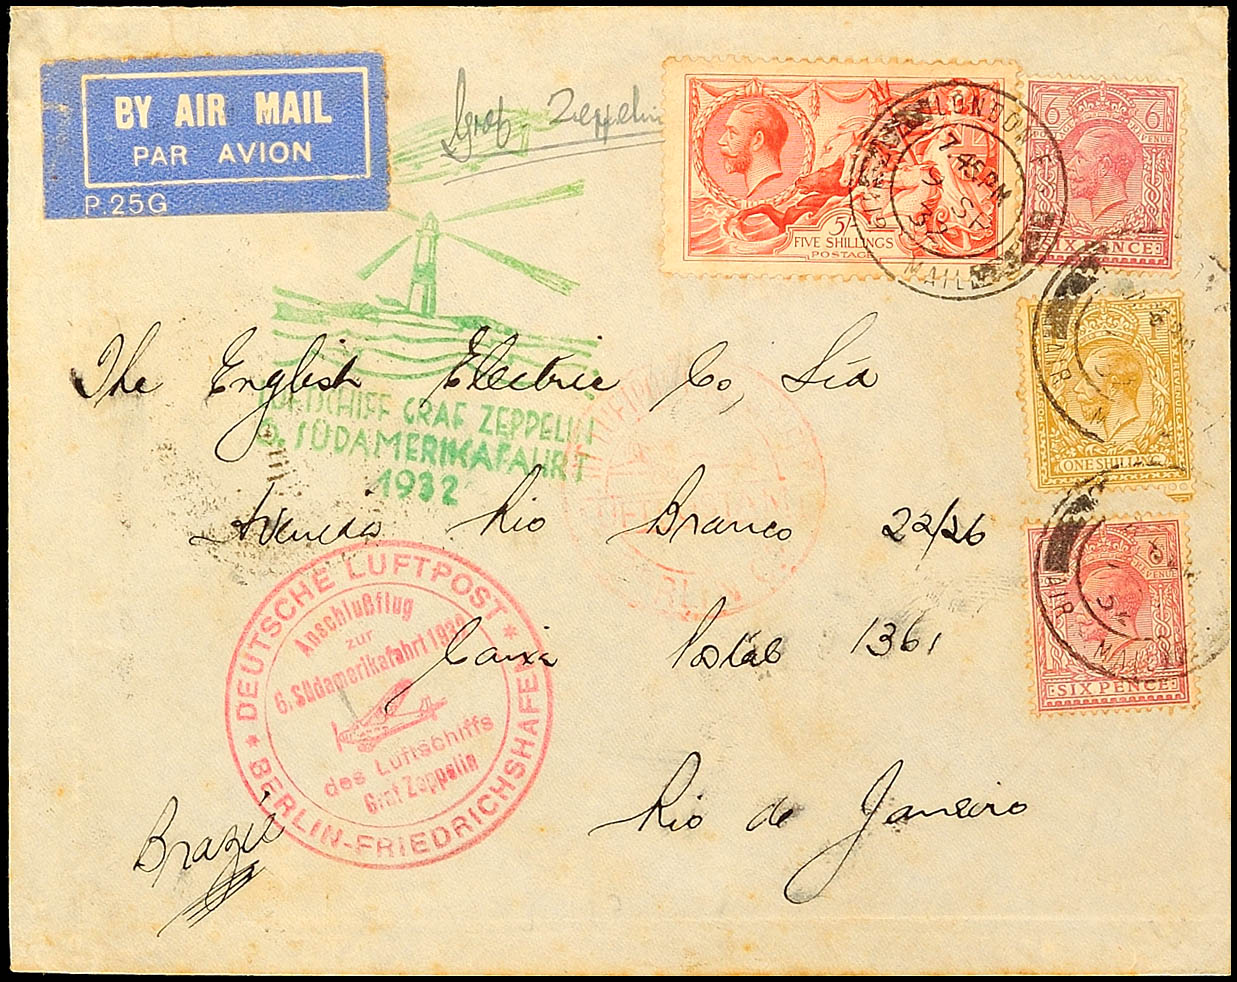 BY AIR MAIL
PAR AVION
P.25G
Graf Zeppelin
5/-
FIVE SHILLINGS
POSTAGE
LONDON F.S.
7 45 PM
9 SP
32
AIR MAIL
6 6
SIX PENCE
ONE SHILLING
AIR MAIL
SIX PENCE
AIR MAIL
The English Electric Co, Ltd
LUFTSCHIFF GRAF ZEPPELIN
6. SÜDAMERIKAFAHRT
1932
Aveneda Rio Branco 22/26
LUFTPOSTAMT
BERLIN C
DEUTSCHE LUFTPOST
Anschlußflug
zur
6. Südamerikafahrt 1932
des Luftschiffs
Graf Zeppelin
BERLIN-FRIEDRICHSHAFEN
Caixa Postal 1361
Rio de Janeiro
Brazil